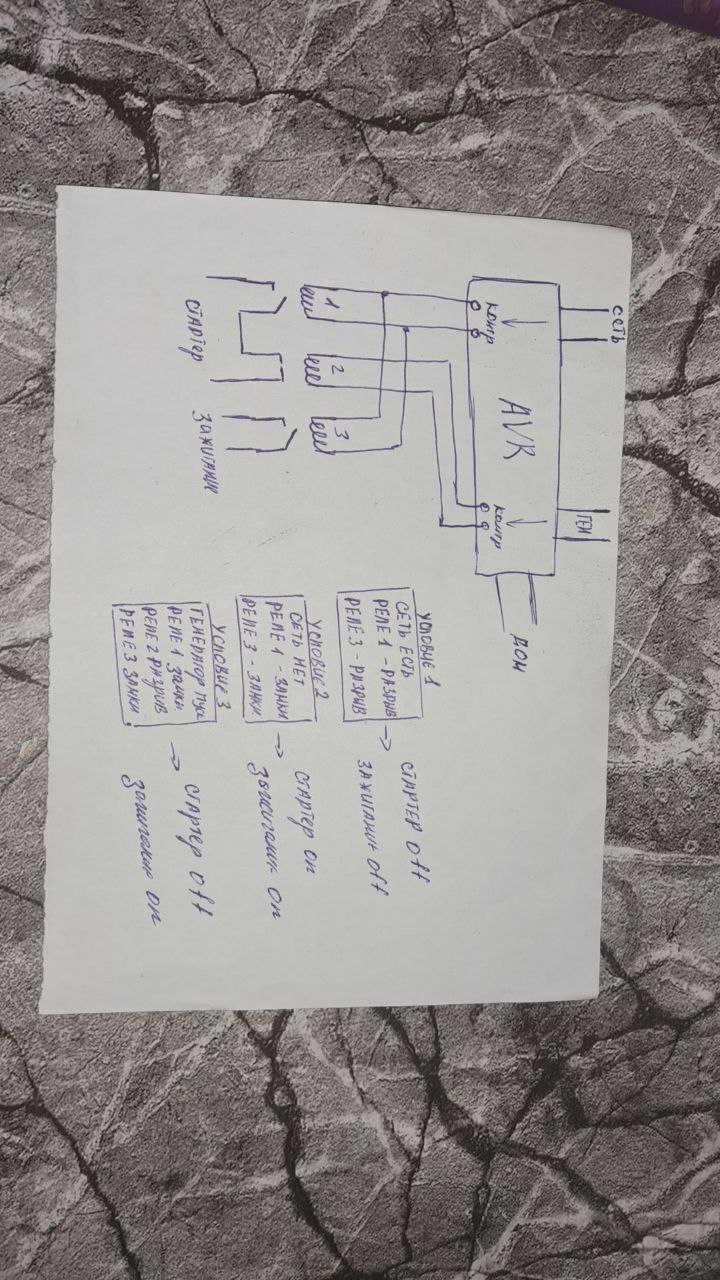 СЕТЬ
ГЕН
контр
контр
AVR
ДОМ
1
2
3
СТАРТЕР
ЗАЖИГАНИЕ
УСЛОВИЕ 1
СЕТЬ ЕСТЬ
РЕЛЕ 1 - РАЗРЫВ
РЕЛЕ 3 - РАЗРЫВ
→ СТАРТЕР off
ЗАЖИГАНИЕ off
УСЛОВИЕ 2
СЕТЬ НЕТ
РЕЛЕ 1 - ЗАМКН
РЕЛЕ 3 - ЗАМКН
→ СТАРТЕР on
Зажигание on
УСЛОВИЕ 3
ГЕНЕРАТОР ПУСК
РЕЛЕ 1 ЗАМКН
РЕЛЕ 2 РАЗРЫВ
РЕЛЕ 3 ЗАМКН.
→ СТАРТЕР off
Зажигание on